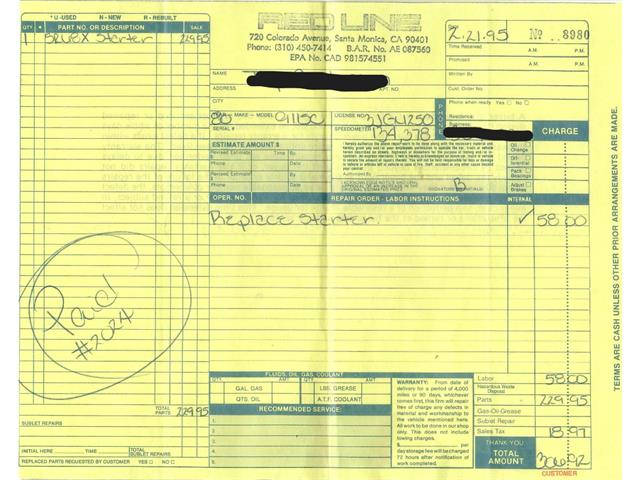 * U - USED N - NEW R - REBUILT
QTY. * PART NO. OR DESCRIPTION SALE
1 Starter 229.95
RED LINE
720 Colorado Avenue, Santa Monica, CA 90401
Phone: (310) 450-7414 B.A.R. No. AE 087560
EPA No. CAD 981574551
Date 2.21.95 No. 8980
Time Received A.M. P.M.
Promised A.M. P.M.
Written By
Cust. Order No.
Phone when ready Yes No
PHONE
Residence:
Business:
NAME
ADDRESS APT. NO.
CITY
YEAR - MAKE - MODEL 80 911SC LICENSE NO.
SERIAL # SPEEDOMETER 134,378
ESTIMATE AMOUNT $
Revised Estimate $
Phone Date
Revised Estimate $
Phone Date
Authorized By
I ACKNOWLEDGE NOTICE AND ORAL APPROVAL OF AN INCREASE IN THE ORIGINAL ESTIMATED PRICE
B
SIGNATURE OR INITIALS)
CHARGE
Oil Change
Differential
Pack Bearings
Adjust Brakes
OPER. NO. REPAIR ORDER - LABOR INSTRUCTIONS INTERNAL
Replace Starter ✓ 58.00
Paid
#2024
FLUIDS, OIL, GAS, COOLANT
QTY. AMT. QTY. AMT.
GAL. GAS LBS. GREASE
QTS. OIL A.T.F. COOLANT
RECOMMENDED SERVICE:
1.
2.
3.
4.
5.
WARRANTY: From date of delivery for a period of 4,000 miles or 90 days, whichever comes first, this firm will repair free of charge any defects in material and workmanship except where otherwise noted. All work to be done in our shop only. This does not include towing charges.
$ per day storage fee will be charged 72 hours after notification of work completed.
Labor 58.00
Hazardous Waste Disposal
Parts 229.95
Gas-Oil-Grease
Sublet Repair
Sales Tax 18.97
THANK YOU
TOTAL AMOUNT 306.92
CUSTOMER
TOTAL PARTS 229.95
SUBLET REPAIRS
INITIAL HERE TIME TOTAL SUBLET REPAIRS
REPLACED PARTS REQUESTED BY CUSTOMER YES NO
TERMS ARE CASH UNLESS OTHER PRIOR ARRANGEMENTS ARE MADE.